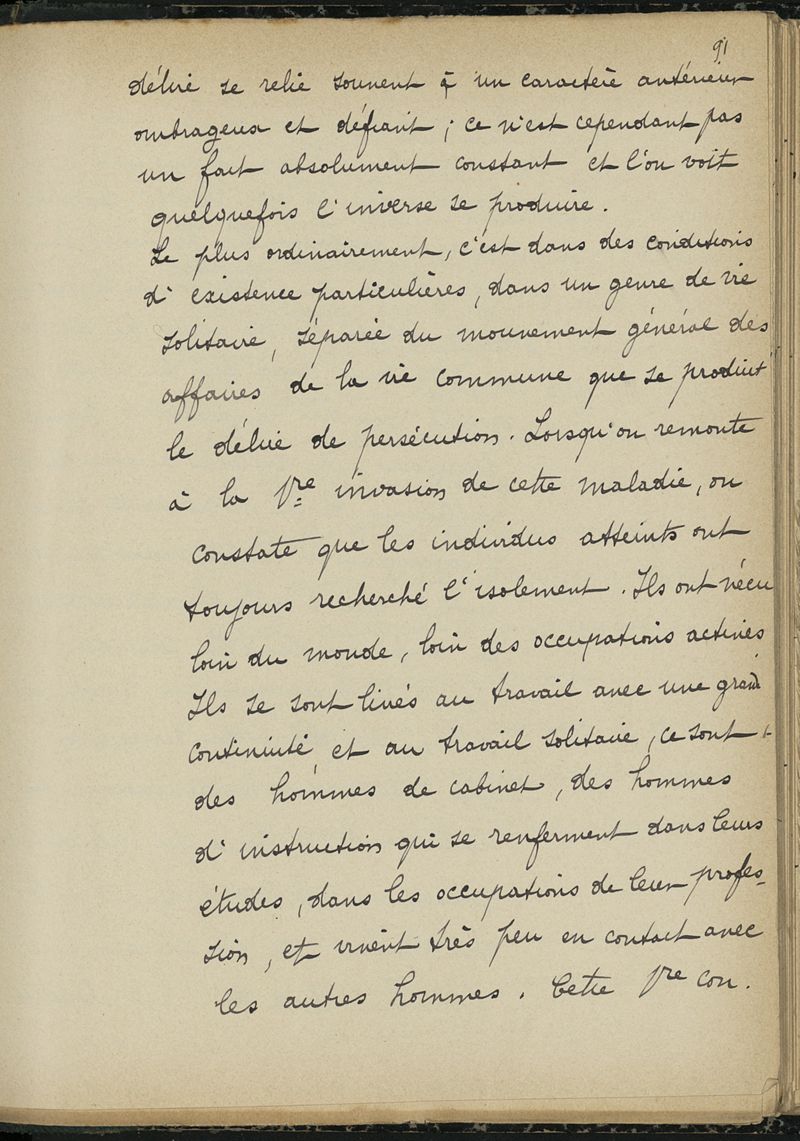 91
délire se relie souvent à un caractère antérieur
ombrageux et défiant ; ce n'est cependant pas
un fait absolument constant et l'on voit
quelquefois l'inverse se produire.
Le plus ordinairement, c'est dans des conditions
d'existence particulières, dans un genre de vie
solitaire, séparée du mouvement général des
affaires de la vie commune que se produit
le délire de persécution. Lorsqu'on remonte
à la 1re invasion de cette maladie, on
constate que les individus atteints ont
toujours recherché l'isolement. Ils ont vécu
loin du monde, loin des occupations actives
Ils se sont livrés au travail avec une grand
continuité et au travail solitaire, ce sont
des hommes de cabinet, des hommes
d'instruction qui se renferment dans leurs
études, dans les occupations de leur profes-
sion, et vivent très peu en contact avec
les autres hommes. Cette 1re con.